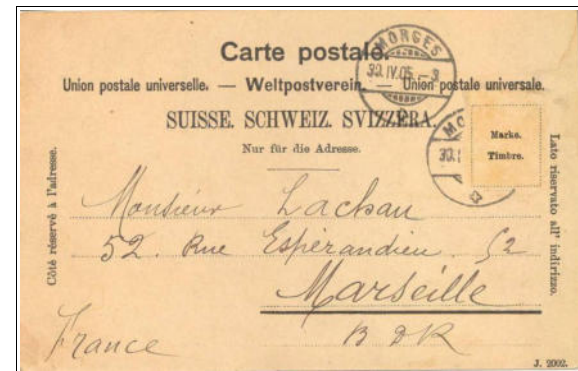 Carte postale.
MORGES
30.IV.05.–8
Union postale universelle. — Weltpostverein. — Union postale universale.
SUISSE. SCHWEIZ. SVIZZERA.
Nur für die Adresse.
MO
30.
Marke.
Timbre.
Côté réservé à l'adresse.
Lato riservato all' indirizzo.
Monsieur Lachau
52. Rue Espérandieu. 52
Marseille
B D R
France
J. 2002.